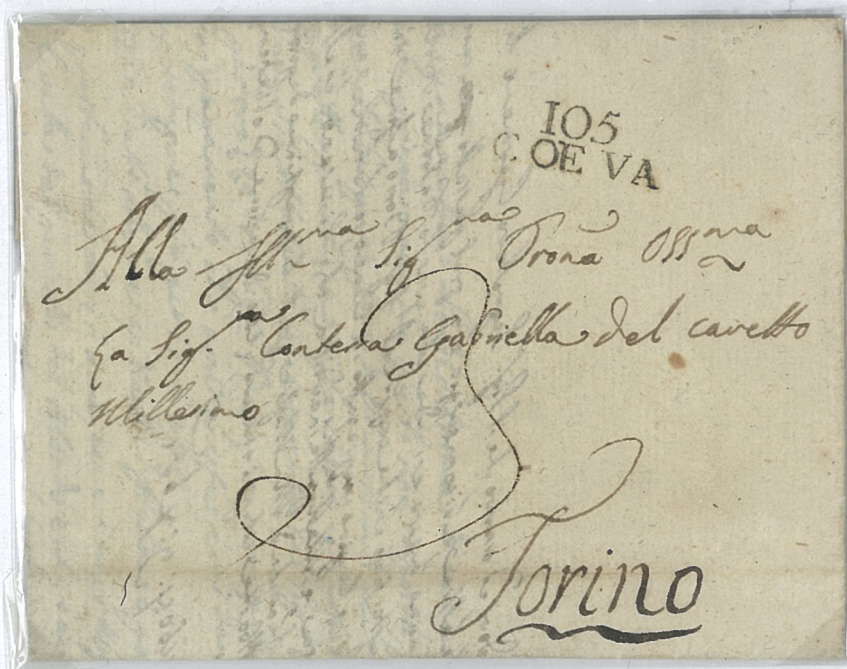 105
COEVA
Alla Ill.ma Sig.na Prona Oss.ma
La Sig.ra Contessa Gabriella del caretto
Millesimo
3
Torino